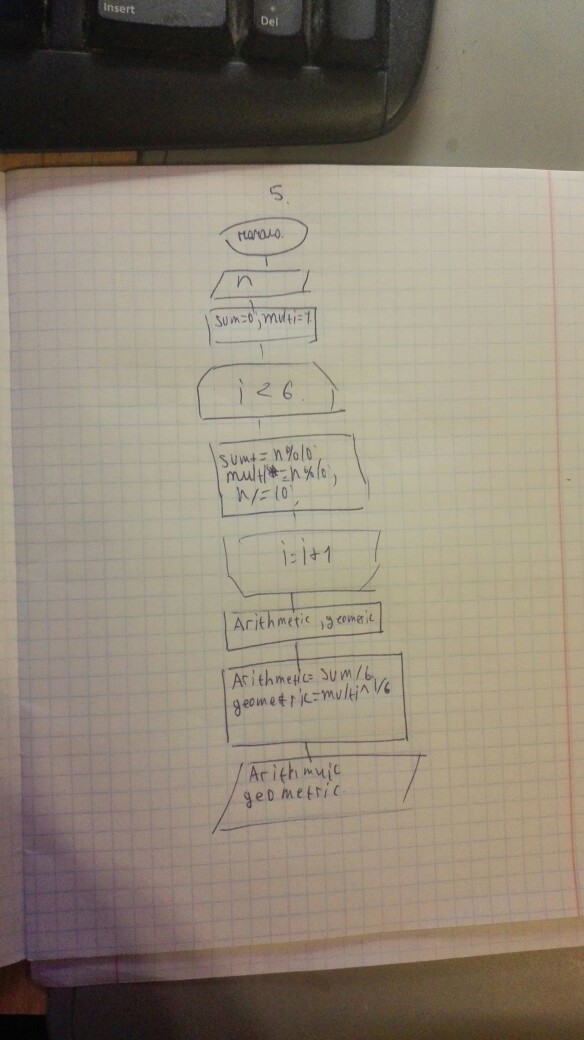 Insert
Del
5.
начало.
n
sum=0; multi=1
i < 6.
sum+=n%10;
multi*=n%10;
n/=10;
i=i+1
Arithmetic, geometric
Arithmetic=sum/6
geometric=multi^1/6
Arithmuic
geometric